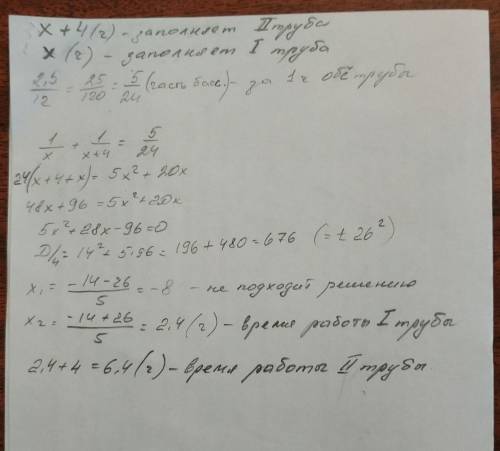 x + 4 (г) - заполняет II труба
x (г) - заполняет I труба
2,5/12 = 25/120 = 5/24 (часть басс.) - за 1 г обе трубы
1/x + 1/x+4 = 5/24
24(x+4+x) = 5x² + 20x
48x + 96 = 5x² + 20x
5x² + 28x - 96 = 0
D/4 = 14² + 5·96 = 196 + 480 = 676 (= ± 26²)
x₁ = -14-26/5 = -8 - не подходит решению
x₂ = -14+26/5 = 2,4 (г) - время работы I трубы
2,4 + 4 = 6,4 (г) - время работы II трубы